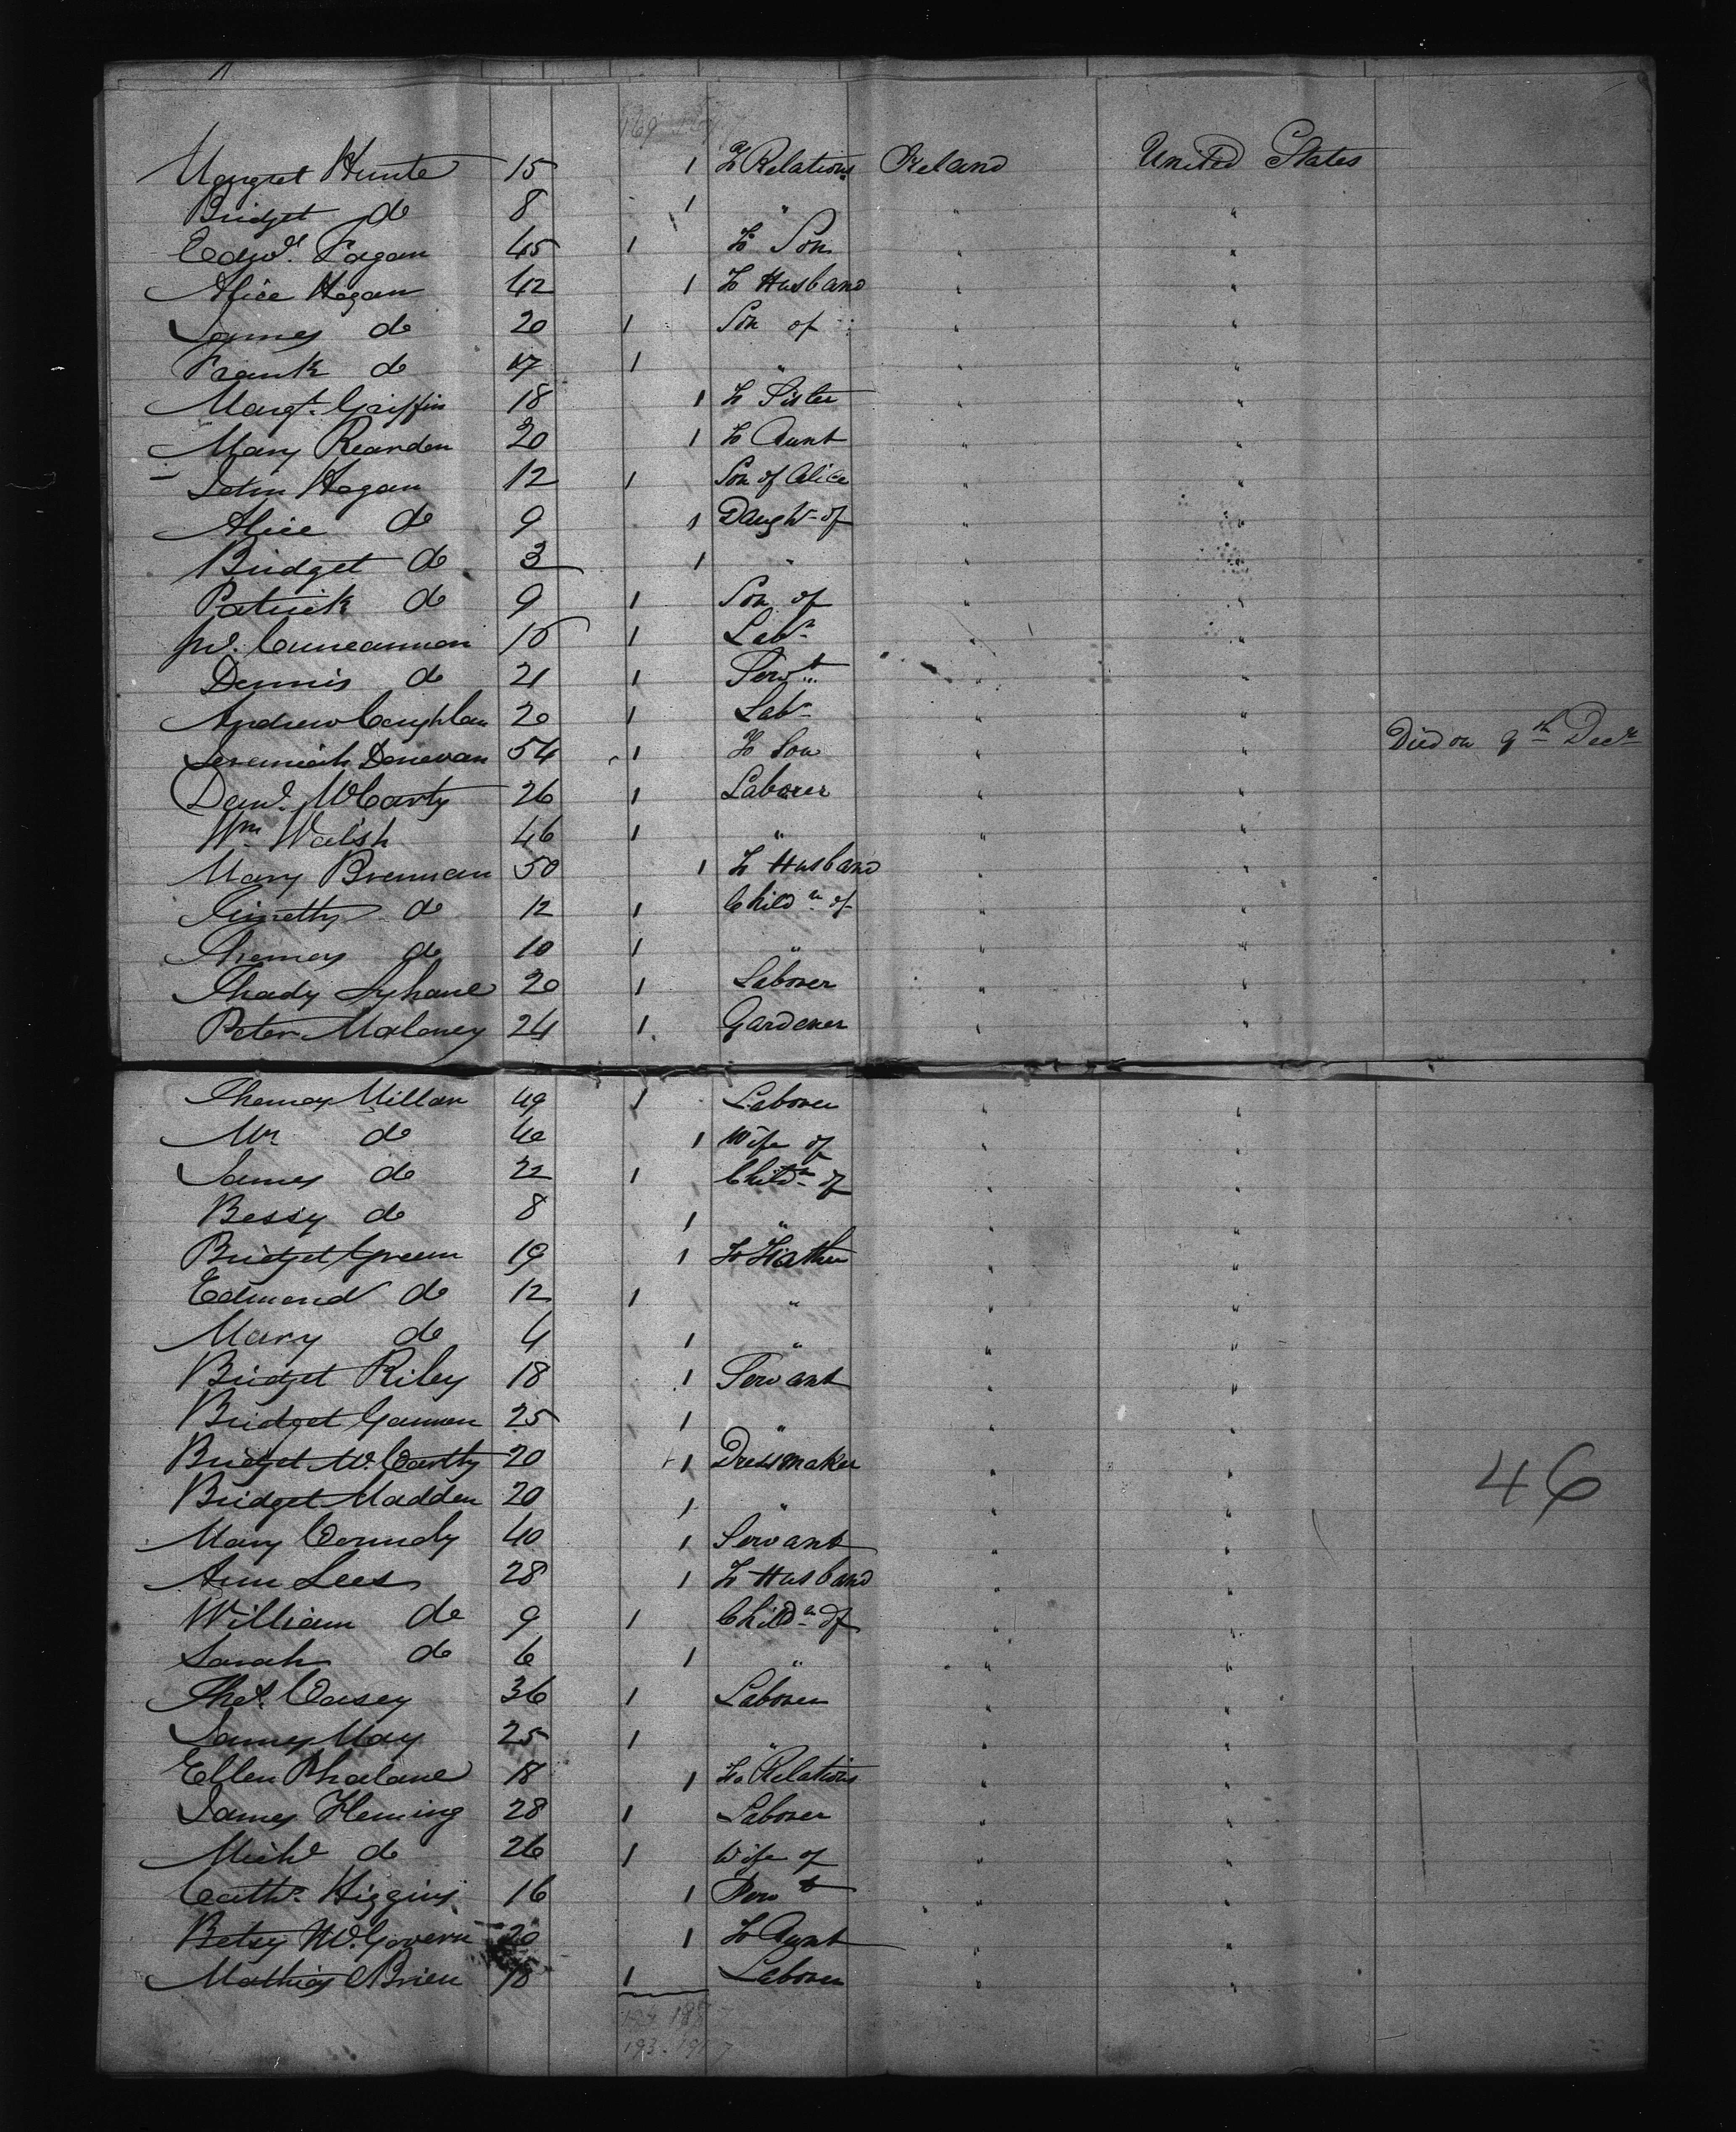 Margret Hunte 15 1 To Relations Ireland United States
Bridget do 8 1 " " "
Edwd. Fagan 45 1 To Son " "
Alice Hogan 42 1 To Husband " "
James do 20 1 Son of " "
Frank do 17 1 " " "
Margt. Griffin 18 1 To Sister " "
Mary Reardon 20 1 To Aunt " "
John Hogan 12 1 Son of Alice " "
Alice do 9 1 Daughtr of " "
Bridget do 3 1 " " "
Patrick do 9 1 Son of " "
Cuneannon 1 Labr " "
Dennis do 21 1 Servt " "
Andrew Coughlan 20 1 Labr " "
Jeremiah Donovan 54 1 To Son " " Died on 9th Decr
Danl. McCarty 26 1 Laborer " "
Wm Walsh 46 1 " " "
Mary Brennan 50 1 To Husband " "
do 12 1 Childn of " "
Thomas do 10 1 " " "
Thady Lyhane 20 1 Laborer " "
Peter Maloney 24 1 Gardener " "
Thomas Millar 49 1 Laborer " "
Mrs do 1 Wife of " "
James do 22 1 Childn of " "
Bessy do 8 1 " " "
Bridget Green 19 1 To Father " "
Edmond do 12 1 " " "
Mary do 4 1 " " "
Bridget Riley 18 1 Servant " "
Bridget Gannon 25 1 " " "
Bridget McCarthy 20 1 Dressmaker " "
Bridget Madden 20 1 " " " 46
Mary Connoly 40 1 Servant " "
Ann Lees 28 1 To Husband " "
William do 9 1 Childn of " "
Sarah do 6 1 " " "
Thos. Casey 36 1 Laborer " "
James May 25 1 " " "
Ellen Phalane 18 1 To Relations " "
James Fleming 28 1 Laborer " "
Michl do 26 1 Wife of " "
Cathe. Higgins 16 1 Servt " "
Betsy McGovern 20 1 To Aunt " "
Mathias OBrien 18 1 Laborer " "
193 - 197